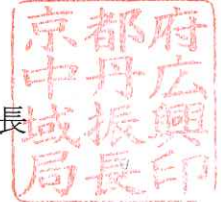 長
京都府
中丹広
域振興
局長印